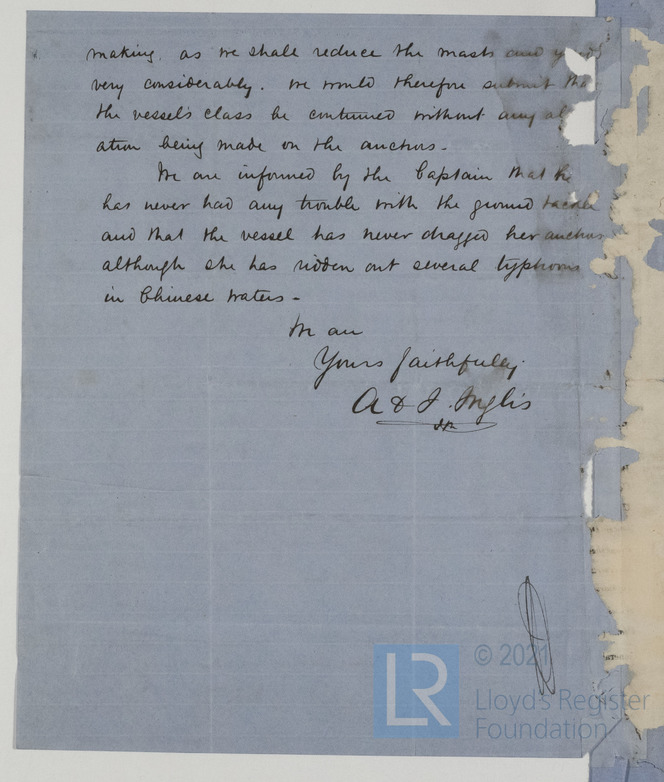 making, as we shall reduce the masts and yards
very considerably. We would therefore submit tha
the vessel's class be continued without any al
ation being made on the anchors.
We are informed by the Captain that he
has never had any trouble with the ground tackle
and that the vessel has never dragged her anchors
although she has ridden out several typhoons
in Chinese Waters -
We are
Yours faithfully,
A & J. Inglis
© 2021
LR
Lloyd's Register
Foundation